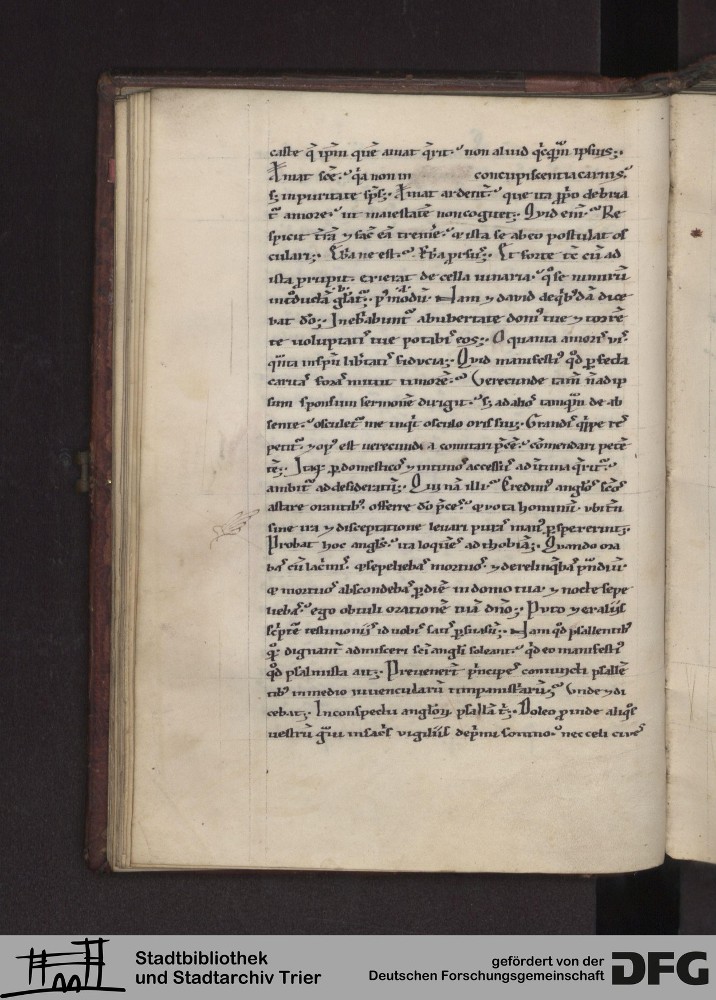 caste q̄ ip̄m quē amat q̄rit· non aliud q̄cq̄m ipsius;·
Amat sc̄e· q̄a non in concupiscentia carnis·
s; in puritate sp̄s;· Amat ardent̄· que ita p̄p̄o debria
t̄ amore· ut maiestatē non cogitet;· Quid eni᷒·? Re
spicit t̄rā ⁊ fac̄ eā tremē· ⁊ ista se ab eo postulat os
culari;· Ebria ne est·? Ebria prorsus;· Et forte tc̄ cū ad
ista prupit· exierat de cella uinaria· q̄ se nimirū
introductā gl̄at᷒· p᷒modū· Nam ⁊ dauid de q̄b᷒dā dice
bat dō;· Inebriabunt᷒ ab ubertate dom᷒ tue ⁊ torrē
te uoluptatis tue potabis eos;· O quanta amoris uis·
q̄nta in sp̄u lib̄tatis fiducia;· Quid manifesti᷒ q̄d p̄fecta
caritas foras mittit timorē· Verecunde tam̄ n̄ ad ip
sum sponsum sermonē dirigit· s; ad alios tamq̄m de ab
sente· osculet᷒ me inq̄t osculo oris sui;· Grandis q̄ppe res
petit᷒· ⁊ op᷒ est uerecundia comitari p̄cē· cōmendari petē
tē;· Itaq; p̄ domesticos ⁊ intimos accessus ad intima q̄rit᷒·
ambit᷒ ad desideratū;· Qui nā illi·? Credim᷒ anglōs sc̄ōs
astare orantib᷒· offerre dō p̄ces· ⁊ uota hominū· ubi tn̄
sine ira ⁊ disceptatione leuari puras man᷒ p̄spexerint;·
Probat hoc angl̄s· ita loquēs ad thobiā;· Quando ora
bas cū lacrīs· ⁊ sepeliebas mortuos· ⁊ derelinq̄bas prandiū·
⁊ mortuos abscondebas p̄ diē in domo tua· ⁊ nocte sepe
liebas· ego obtuli orationē tuā dn̄o;· Puto ⁊ ex aliis
sc̄ptē testimoniis id uobis satis p̄suasū;· Nam q̄d psallentib᷒
q̄q; dignant᷒ admisceri sc̄i angl̄i soleant· q̄d eo manifesti᷒
q̄d psalmista ait;· Preuenert̄ p̄ncipes coniuncti psallē
tib᷒ in medio iuuencularū timpanistriarū;· Unde ⁊ di
cebat;· In conspectu anglōrū psallā t̄;· Doleo proinde aliq̄s
uestrū g̃ui in sacris vigiliis dep̄mi somno· nec celi ciues
Stadtbibliothek
und Stadtarchiv Trier
gefördert von der
Deutschen Forschungsgemeinschaft
DFG